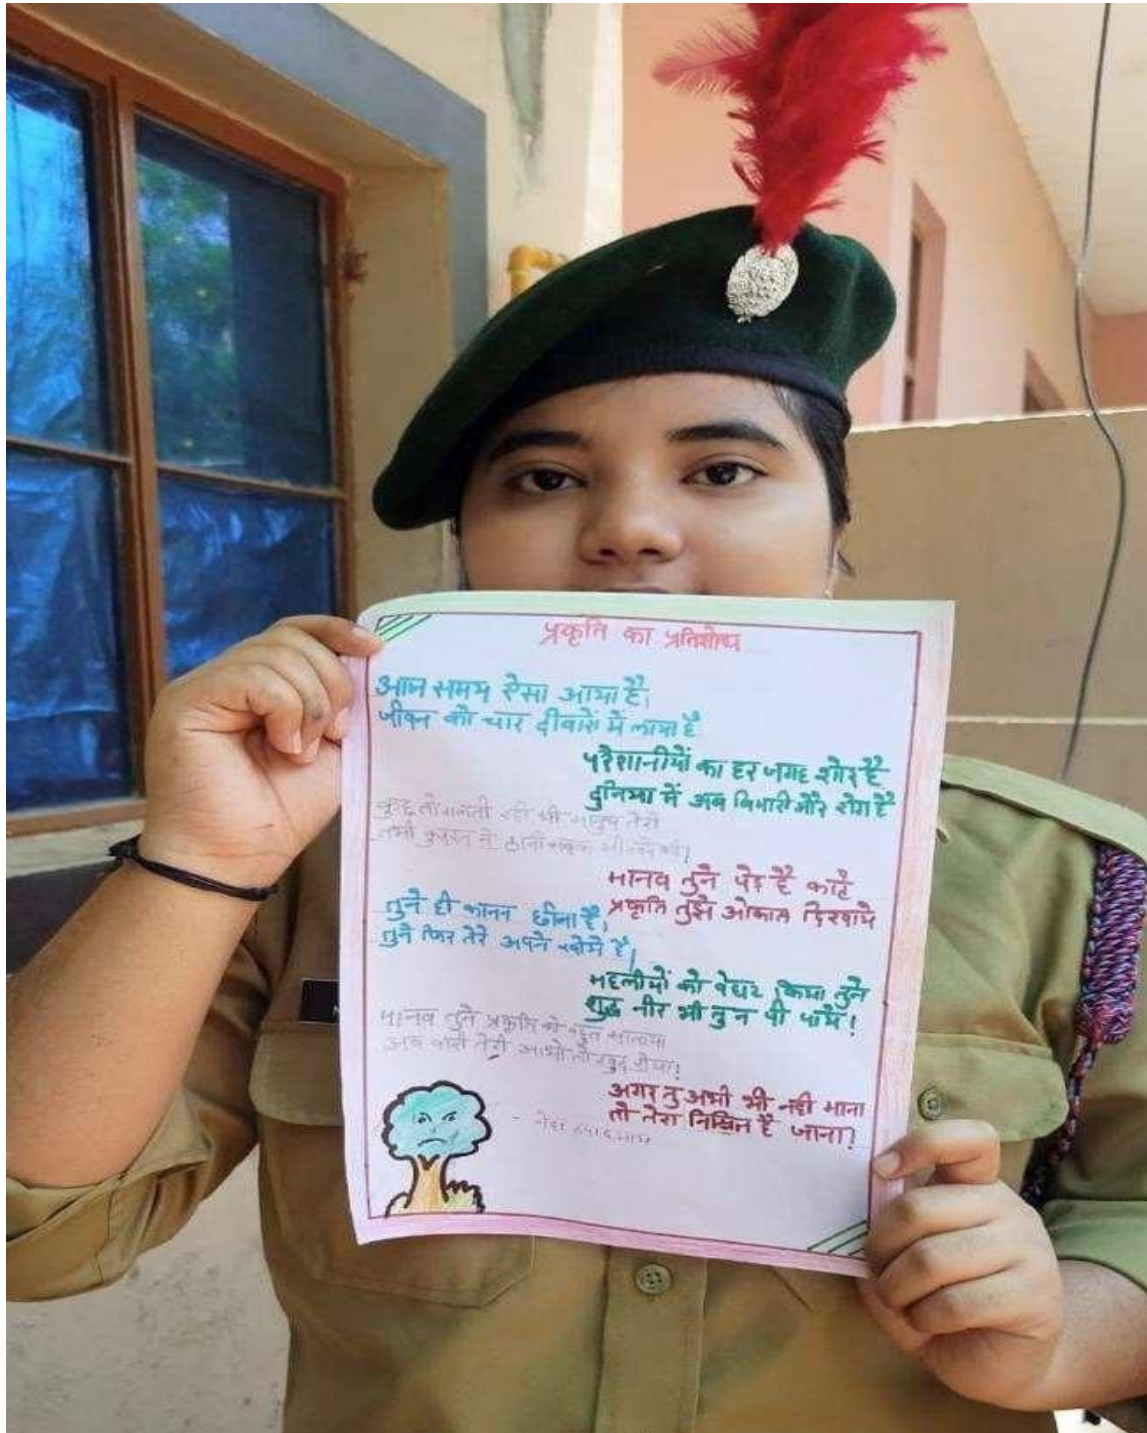 प्रकृति का प्रतिशोध
आज समय ऐसा आया है,
जीवन को चार दीवारों में लाया है
परेशानीयों का हर जगह शोर है
दुनिया में अब बिमारी और रोग है
कुछ तो गलती रही थी मानुष तेरी
तभी कुदरत ने ठानी
मानव तुने पेड़ है काटे
प्रकृति तुझे औकात दिखाये
तुने ही कानन छीना है,
तुने फिर तेरे अपने है।
मछलीयों को बेघर किया तुने
शुद्ध नीर भी तु न पी पाये!
मानव तुने प्रकृति को बहुत सताया
अब बारी तेरी आयी तो खुद रोया!
अगर तु अभी भी नही माना
तो तेरा निश्चित है जाना!